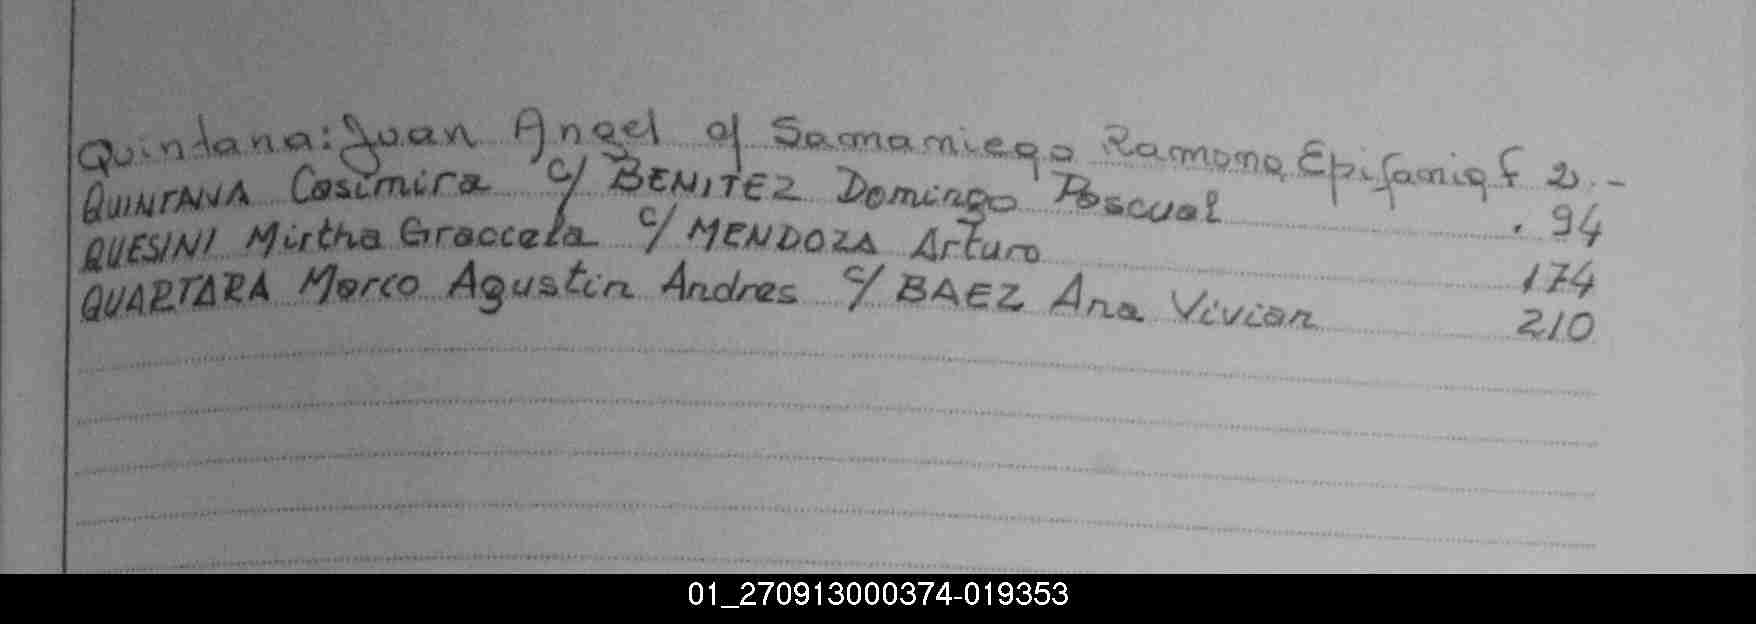 Quindana: Juan Angel c/ Samaniego Ramona Epifania F 2.-
QUINTANA Casimira c/ BENITEZ Domingo Pascual . 94
QUESINI Mirtha Graccela c/ MENDOZA Arturo 174
QUARTARA Marco Agustin Andres c/ BAEZ Ana Vivian 210
01_270913000374-019353